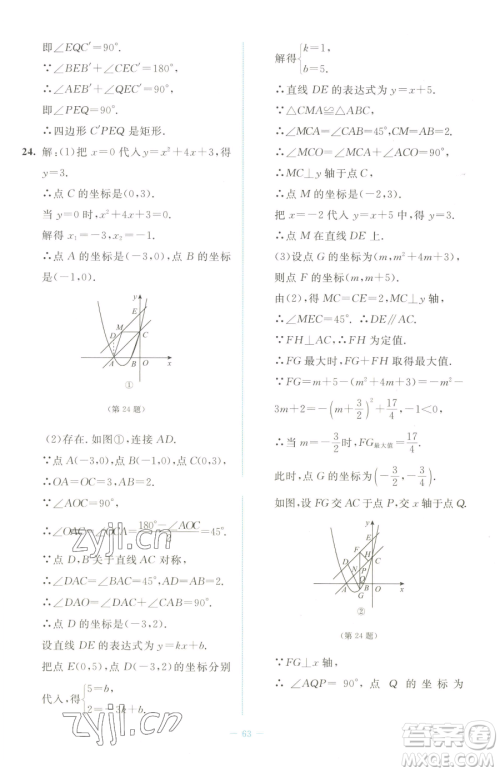 即∠EQC′=90°.
∵∠BEB′+∠CEC′=180°,
∴∠AEB′+∠QEC′=90°,
即∠PEQ=90°.
∴四边形 C′PEQ 是矩形.
24. 解:(1)把 x=0 代入 y=x²+4x+3,得
y=3.
∴点 C 的坐标是(0,3).
当 y=0 时,x²+4x+3=0,
解得 x₁=-3,x₂=-1.
∴点 A 的坐标是(-3,0),点 B 的坐标
是(-1,0).
y
E
D
M
C
A
B
O
x
①
(第 24 题)
(2)存在. 如图①,连接 AD.
∵点 A(-3,0),点 C(0,3),
∴OA=OC=3,
∵∠AOC=90°,
∴∠OAC=∠OCA=(180°-∠AOC)/2=45°.
∵点 D、B 关于直线 AC 对称,
∴∠DAC=∠BAC=45°,AD=AB=2,
∴∠DAB=90°.
∴点 D 的坐标为(-3,2).
设直线 DE 的表达式为 y=kx+b.
把点 E(0,5),点 D(-3,2)的坐标分别
代入,得{5=b, 2=-3k+b,
解得{k=1, b=5.
∴直线 DE 的表达式为 y=x+5.
∵△CMA≌△AOC,
∴∠MCA=∠CAO=45°,CM=OA=3,
∴∠MCO=∠MCA+∠OCA=90°,
∴MC⊥y 轴于点 C.
把 x=-2 代入 y=x+5,得 y=3.
∴点 M 在直线 DE 上.
(3)设点 G 的坐标为(m,m²+4m+3),
则点 F 的坐标为(m,m+5).
由(2),得 MC=CE=2,MC⊥y 轴,
∴∠MEC=45°.
∵FH⊥AC,∴FH 为定值.
∴FG 最大时,FH 取得最大值.
∵FG=m+5-(m²+4m+3)=-m²-
3m+2=-(m+3/2)²+17/4,-1<0,
∴当 m=-3/2时,FG最大值=17/4.
此时,点 G 的坐标为(-3/2,-3/4).
如图,设 FG 交 AC 于点 P,交 x 轴于点 Q.
②
(第 24 题)
∵FG⊥x 轴,
∴∠AQP = 90°,点 Q 的坐标为
63
zyjl.cn
zyjl.cn